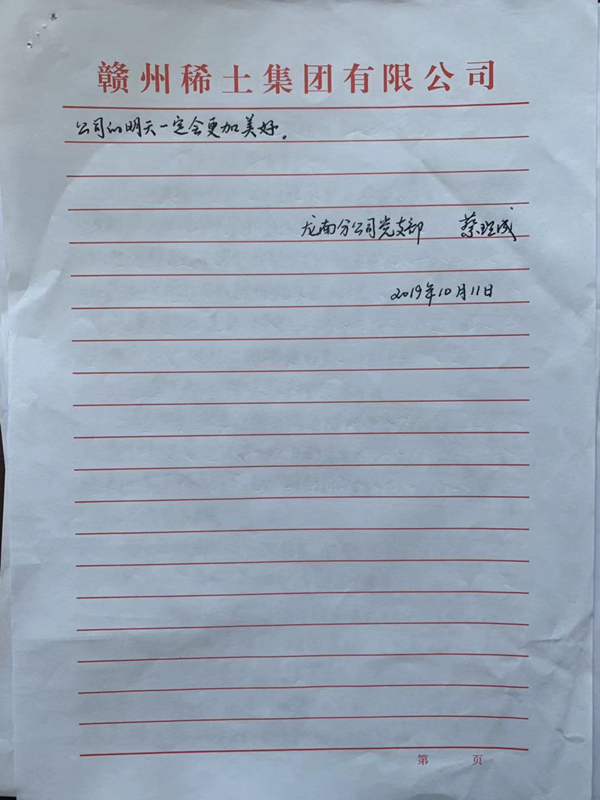 赣州稀土集团有限公司
公司的明天一定会更加美好。
龙南分公司党支部 蔡
2019年10月11日
第 页